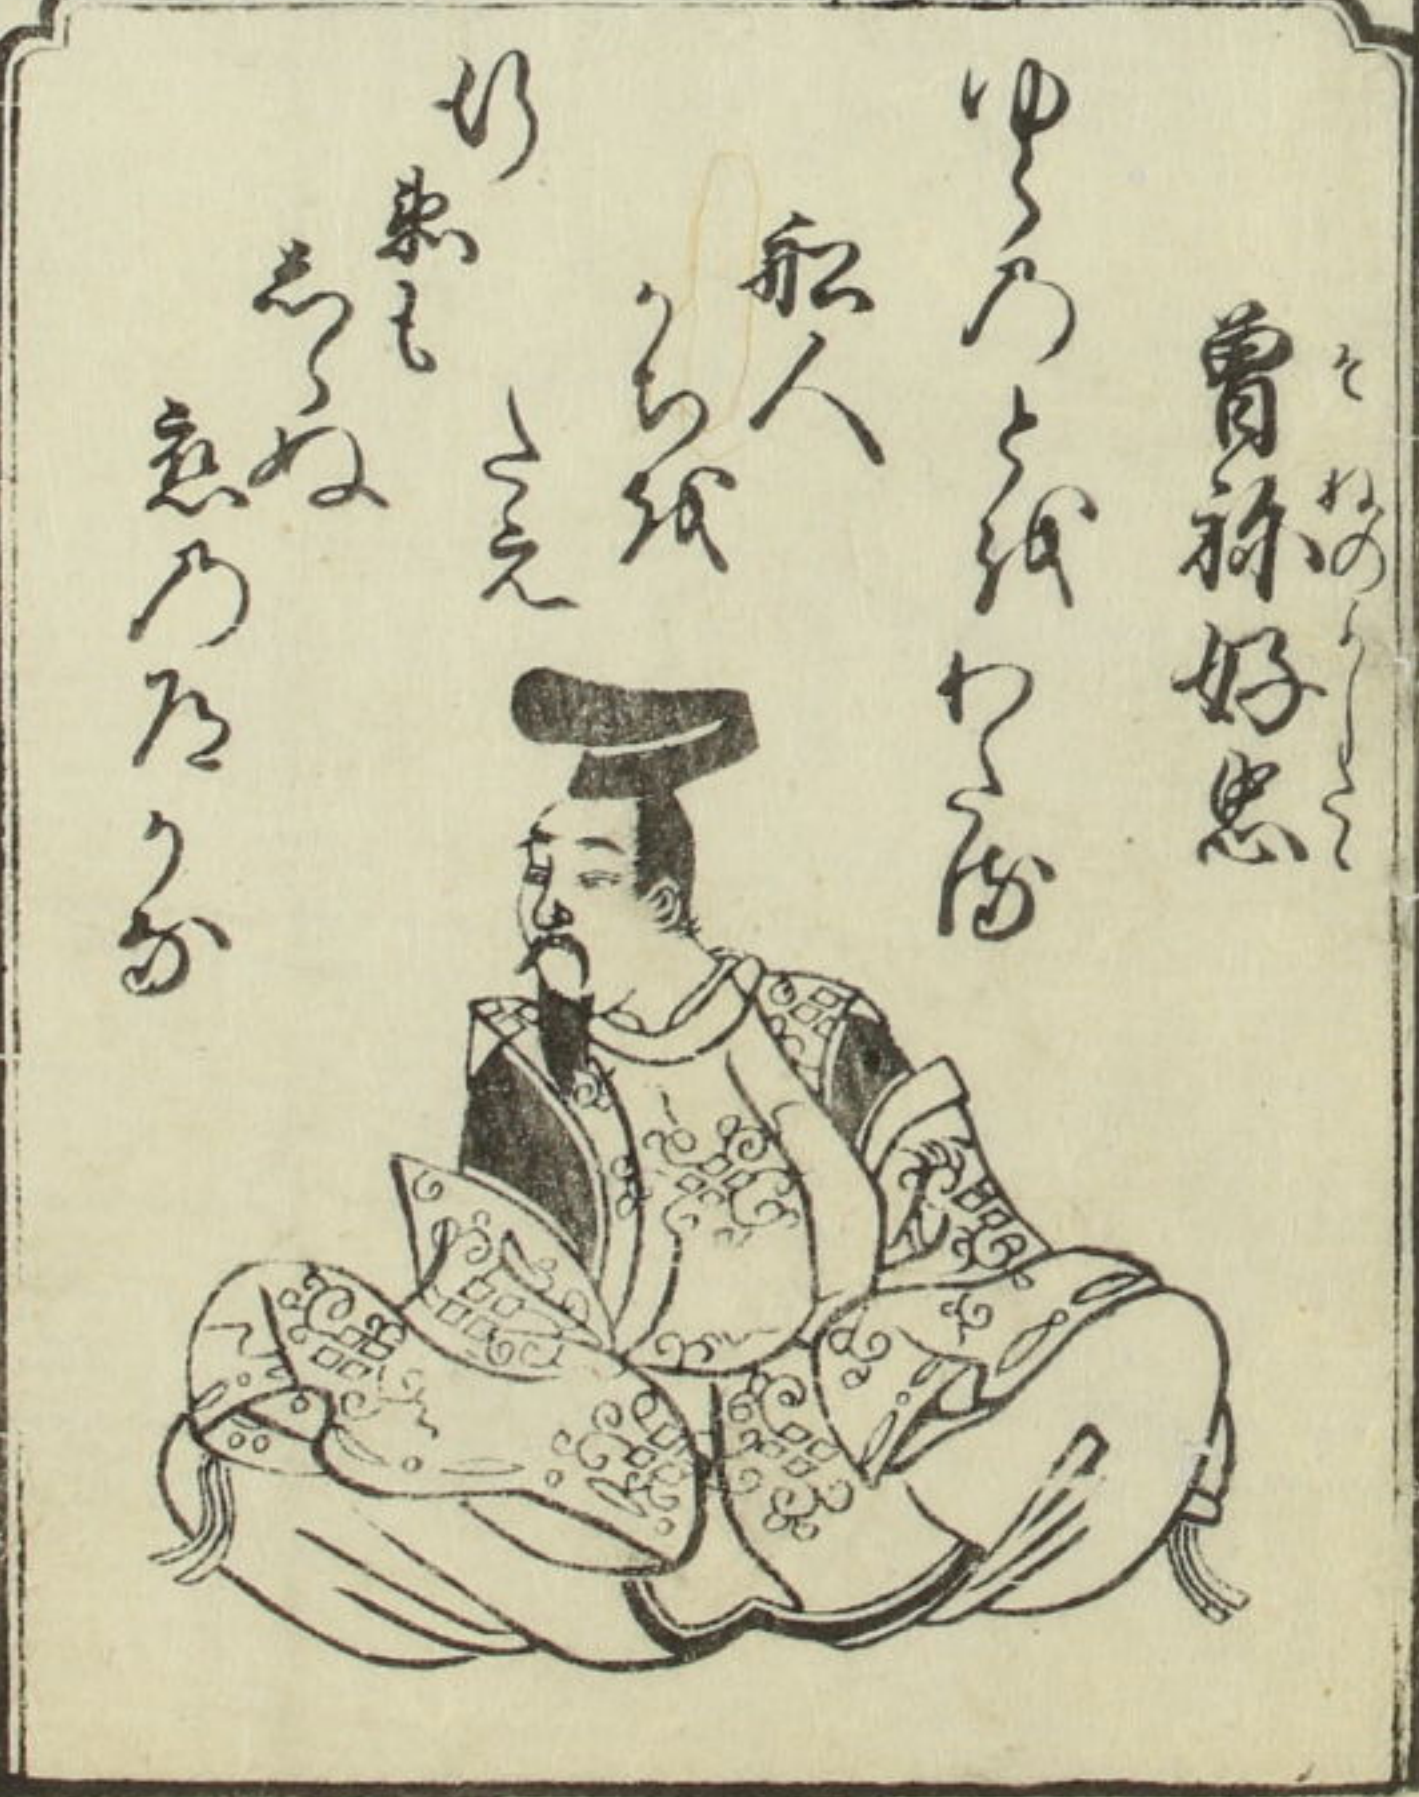 そねのよしたゝ
曽祢好忠
ゆらのとをわたる
船人
かちを
たえ
行
ゑも
しらぬ
恋の道かな